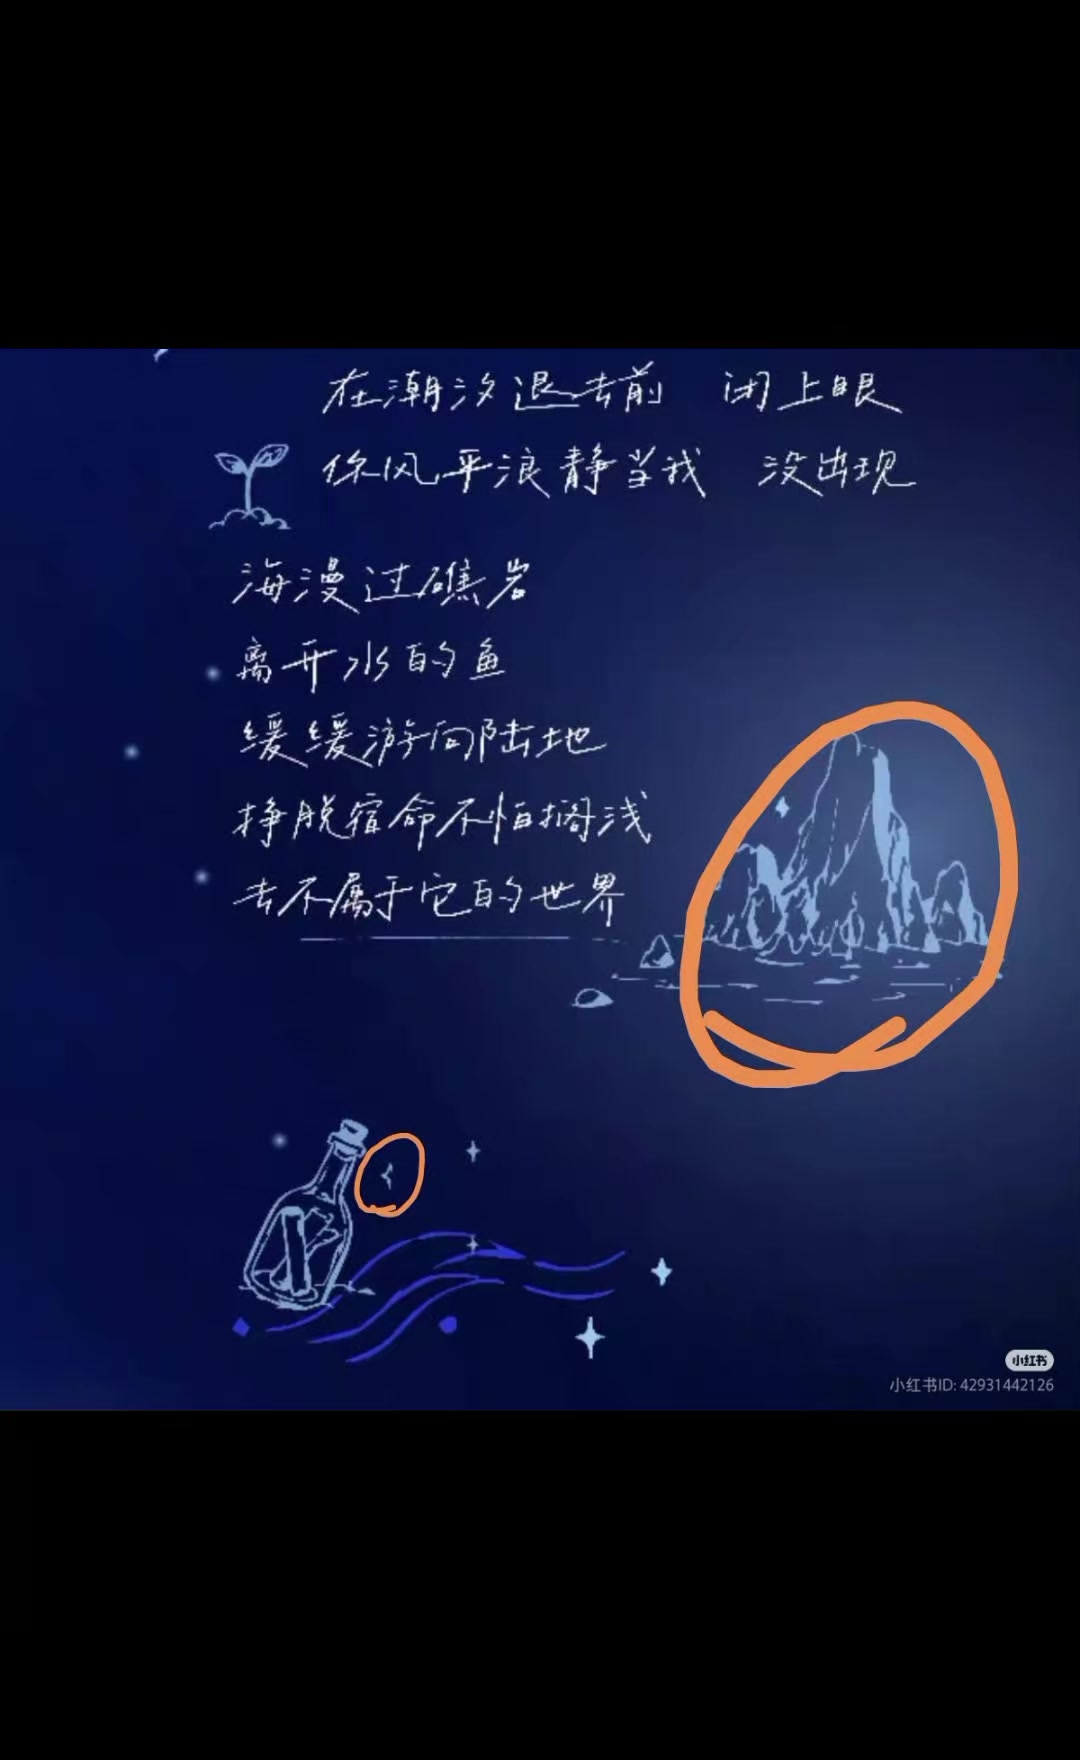 在潮汐退去前 闭上眼
你风平浪静当我 没出现
海漫过礁岩
离开水的鱼
缓缓游向陆地
挣脱宿命不怕搁浅
去不属于它的世界
小红书
小红书ID: 42931442126